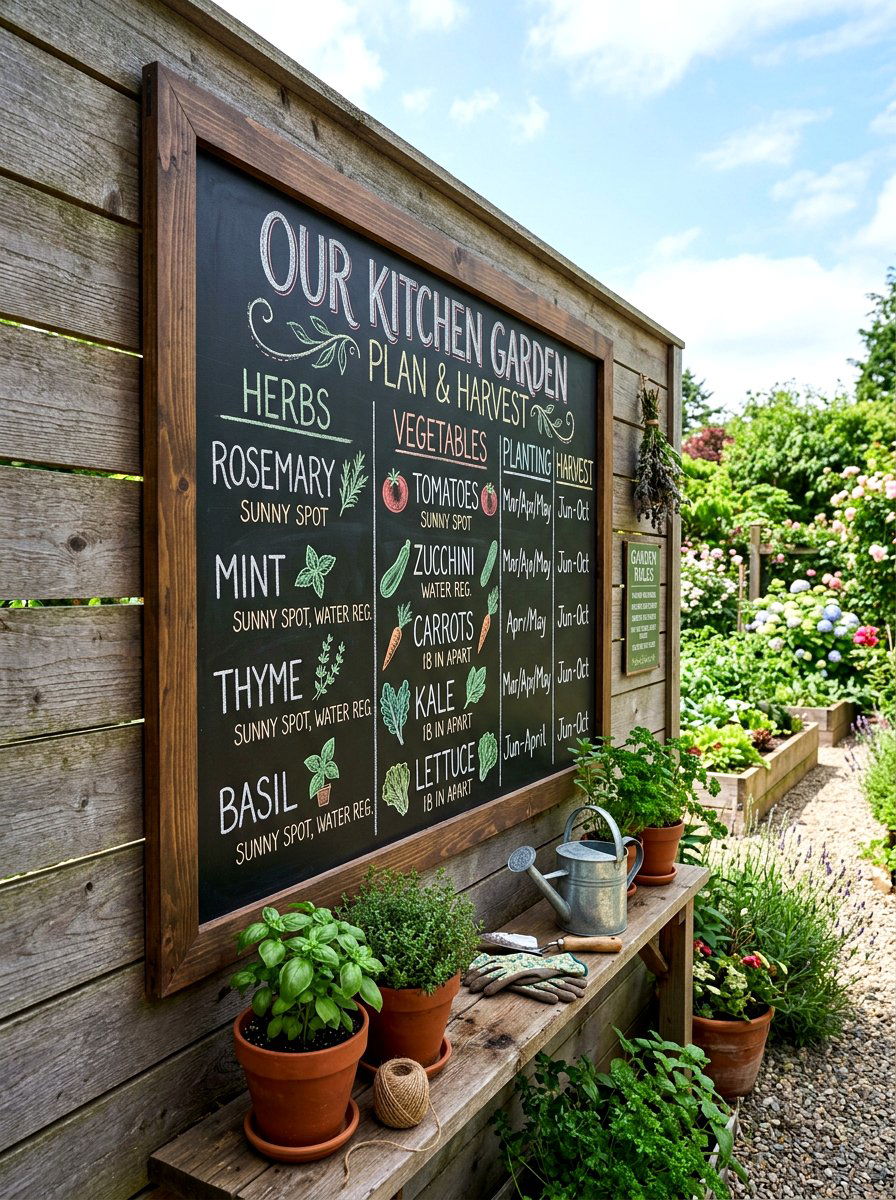 OUR KITCHEN GARDEN
PLAN & HARVEST
HERBS
ROSEMARY
SUNNY SPOT
MINT
SUNNY SPOT, WATER REG.
THYME
SUNNY SPOT, WATER REG.
BASIL
SUNNY SPOT, WATER REG.
VEGETABLES PLANTING HARVEST
TOMATOES Mar/Apr/May Jun-Oct
SUNNY SPOT
ZUCCHINI Mar/Apr/May Jun-Oct
WATER REG.
CARROTS Apr/May Jun-Oct
18 IN APART
KALE Mar/Apr/May Jun-Oct
18 IN APART
LETTUCE Jun-April Jun-Oct
18 IN APART
GARDEN
RULES